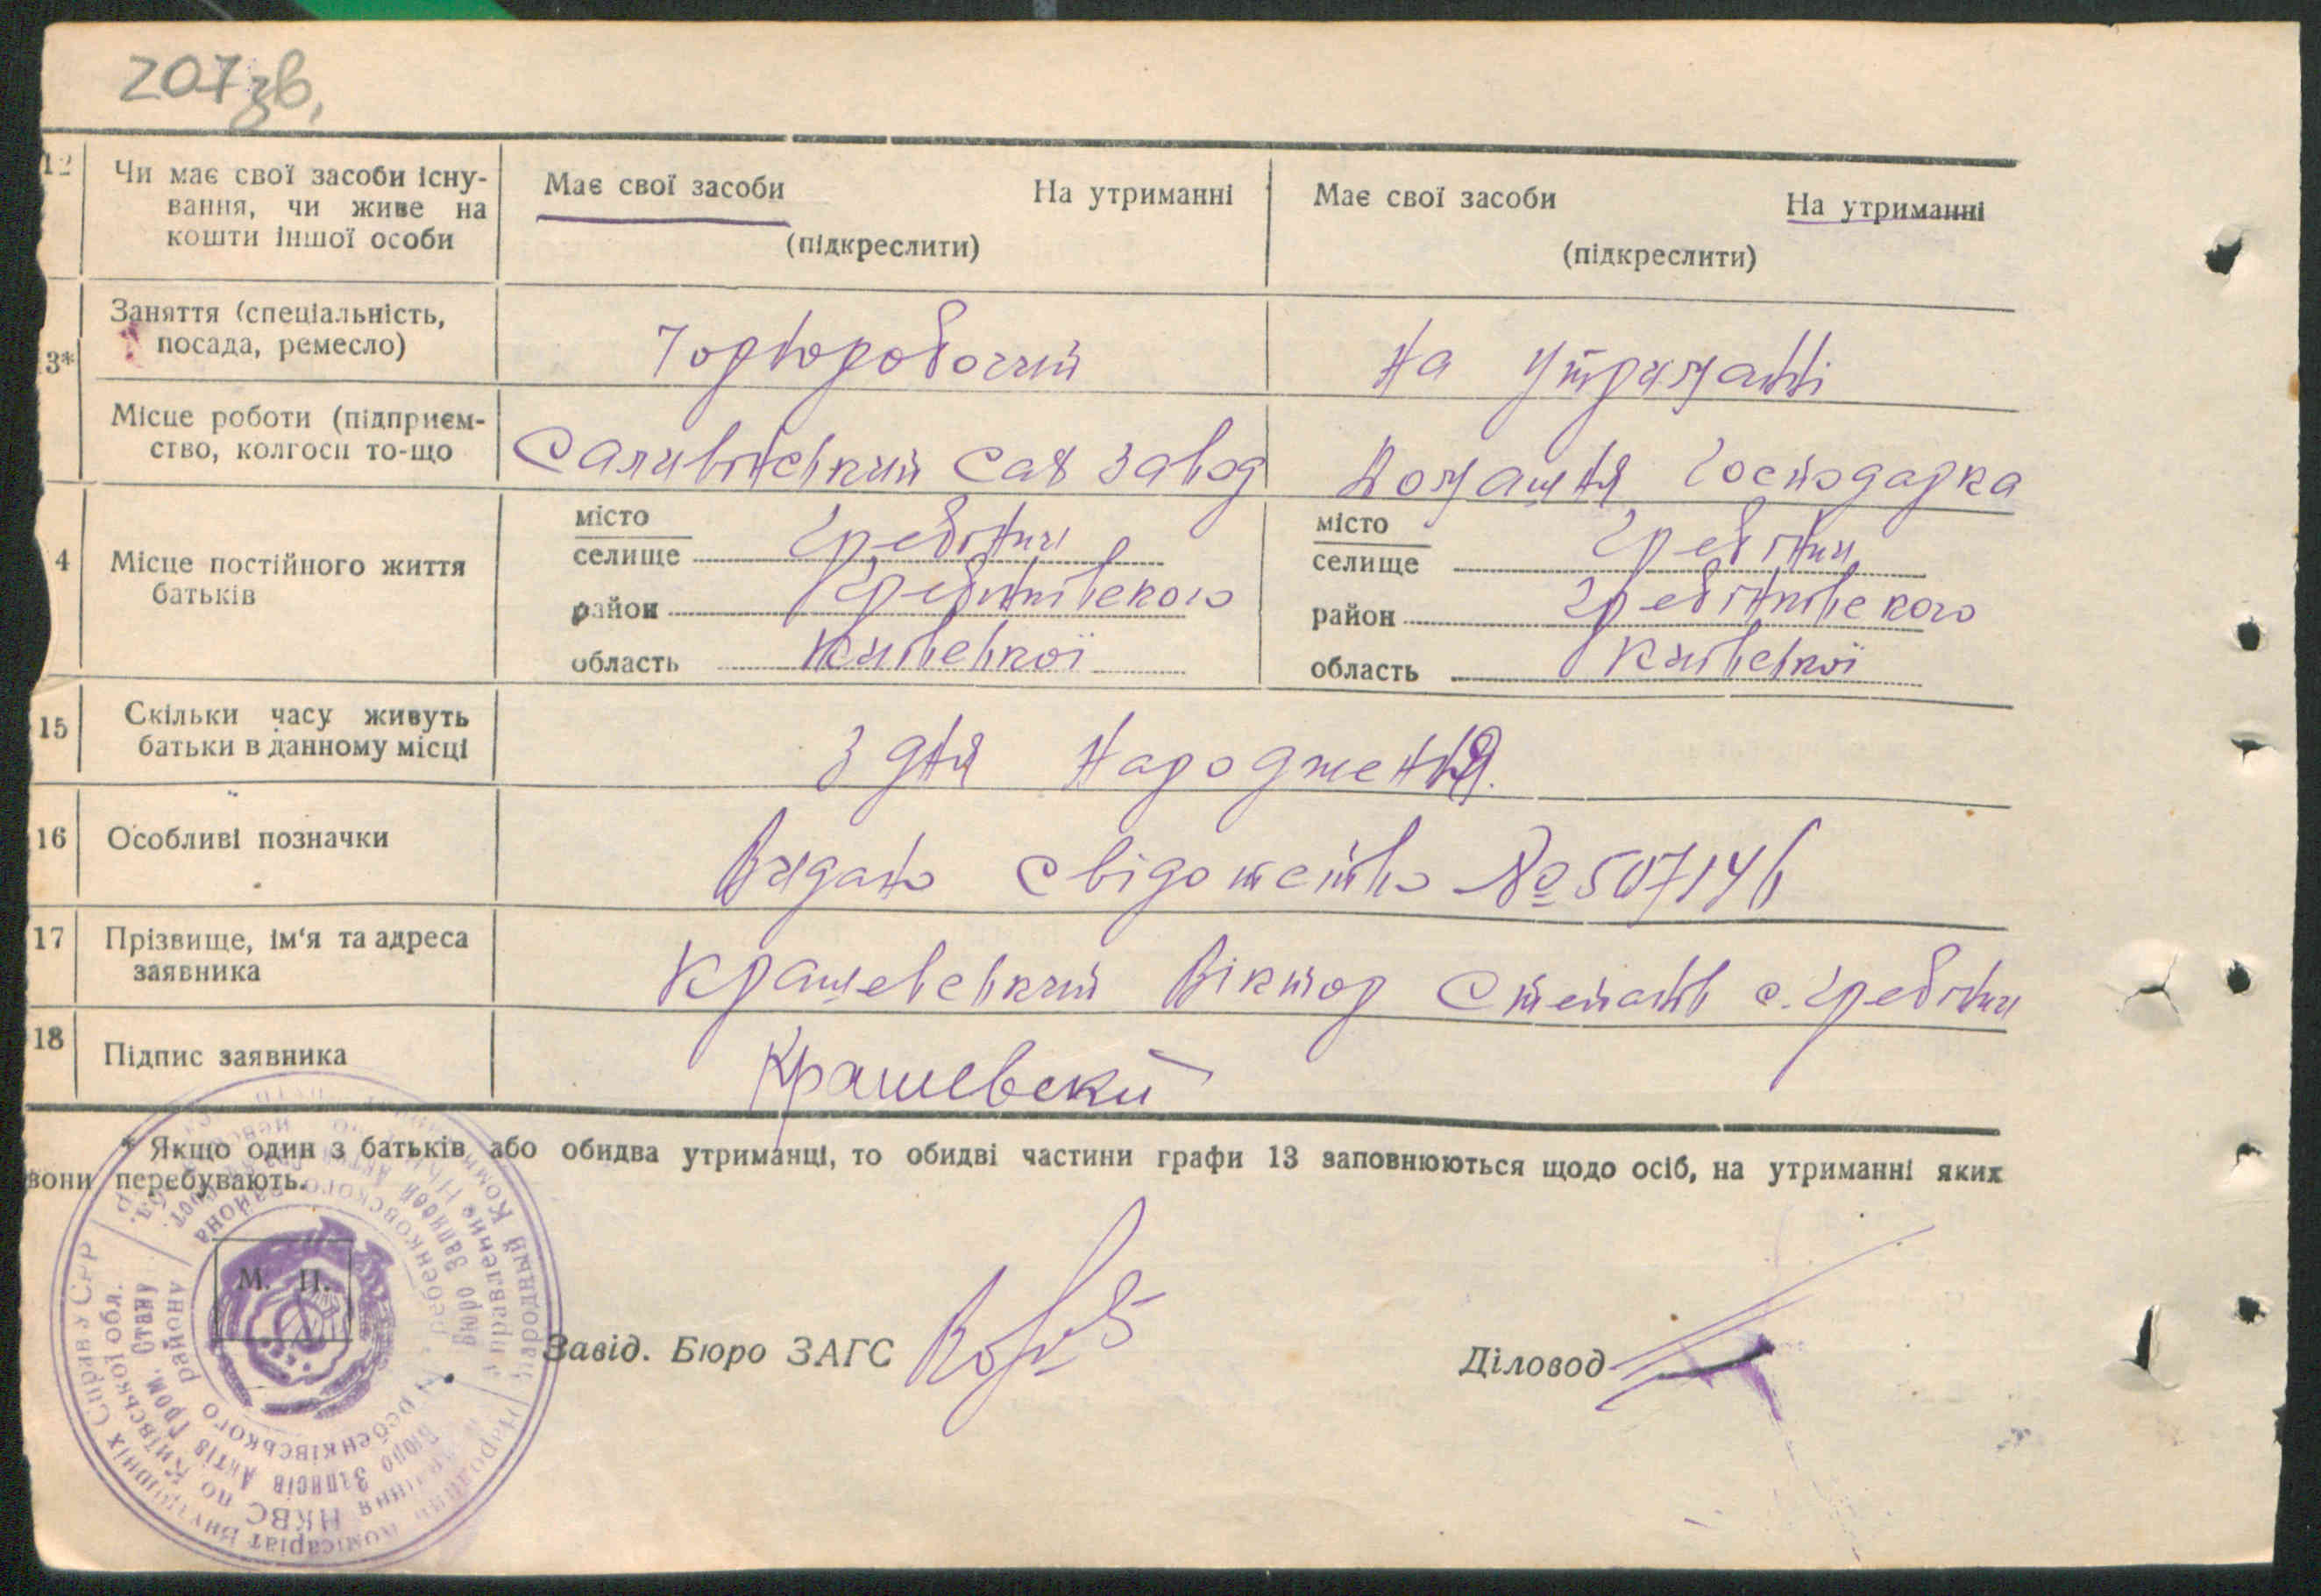 207зв,
12
Чи має свої засоби існу-
вання, чи живе на
кошти іншої особи
Має свої засоби На утриманні
(підкреслити)
Має свої засоби На утриманні
(підкреслити)
3*
Заняття (спеціальність,
посада, ремесло)
Чорноробочий
На утриманні
Місце роботи (підприєм-
ство, колгосп то-що
Саливінський Сах завод
Домашня господарка
4
Місце постійного життя
батьків
місто
селище Гребінки
район Гребінківського
область Київської
місто
селище Гребінки
район Гребінківського
область Київської
15
Скільки часу живуть
батьки в данному місці
З дня народження.
16
Особливі позначки
Видано свідоцтво № 507146
17
Прізвище, ім'я та адреса
заявника
Крашевський Віктор Степан с. Гребінки
18
Підпис заявника
Крашевский
* Якщо один з батьків або обидва утриманці, то обидві частини графи 13 заповнюються щодо осіб, на утриманні яких
вони перебувають.
М. П.
Завід. Бюро ЗАГС
Діловод
Народний Комісаріат Внутрішніх Справ УСРР
Управління НКВС по Київській обл.
Бюро Записів Актів Гром. Стану
Гребенківського району